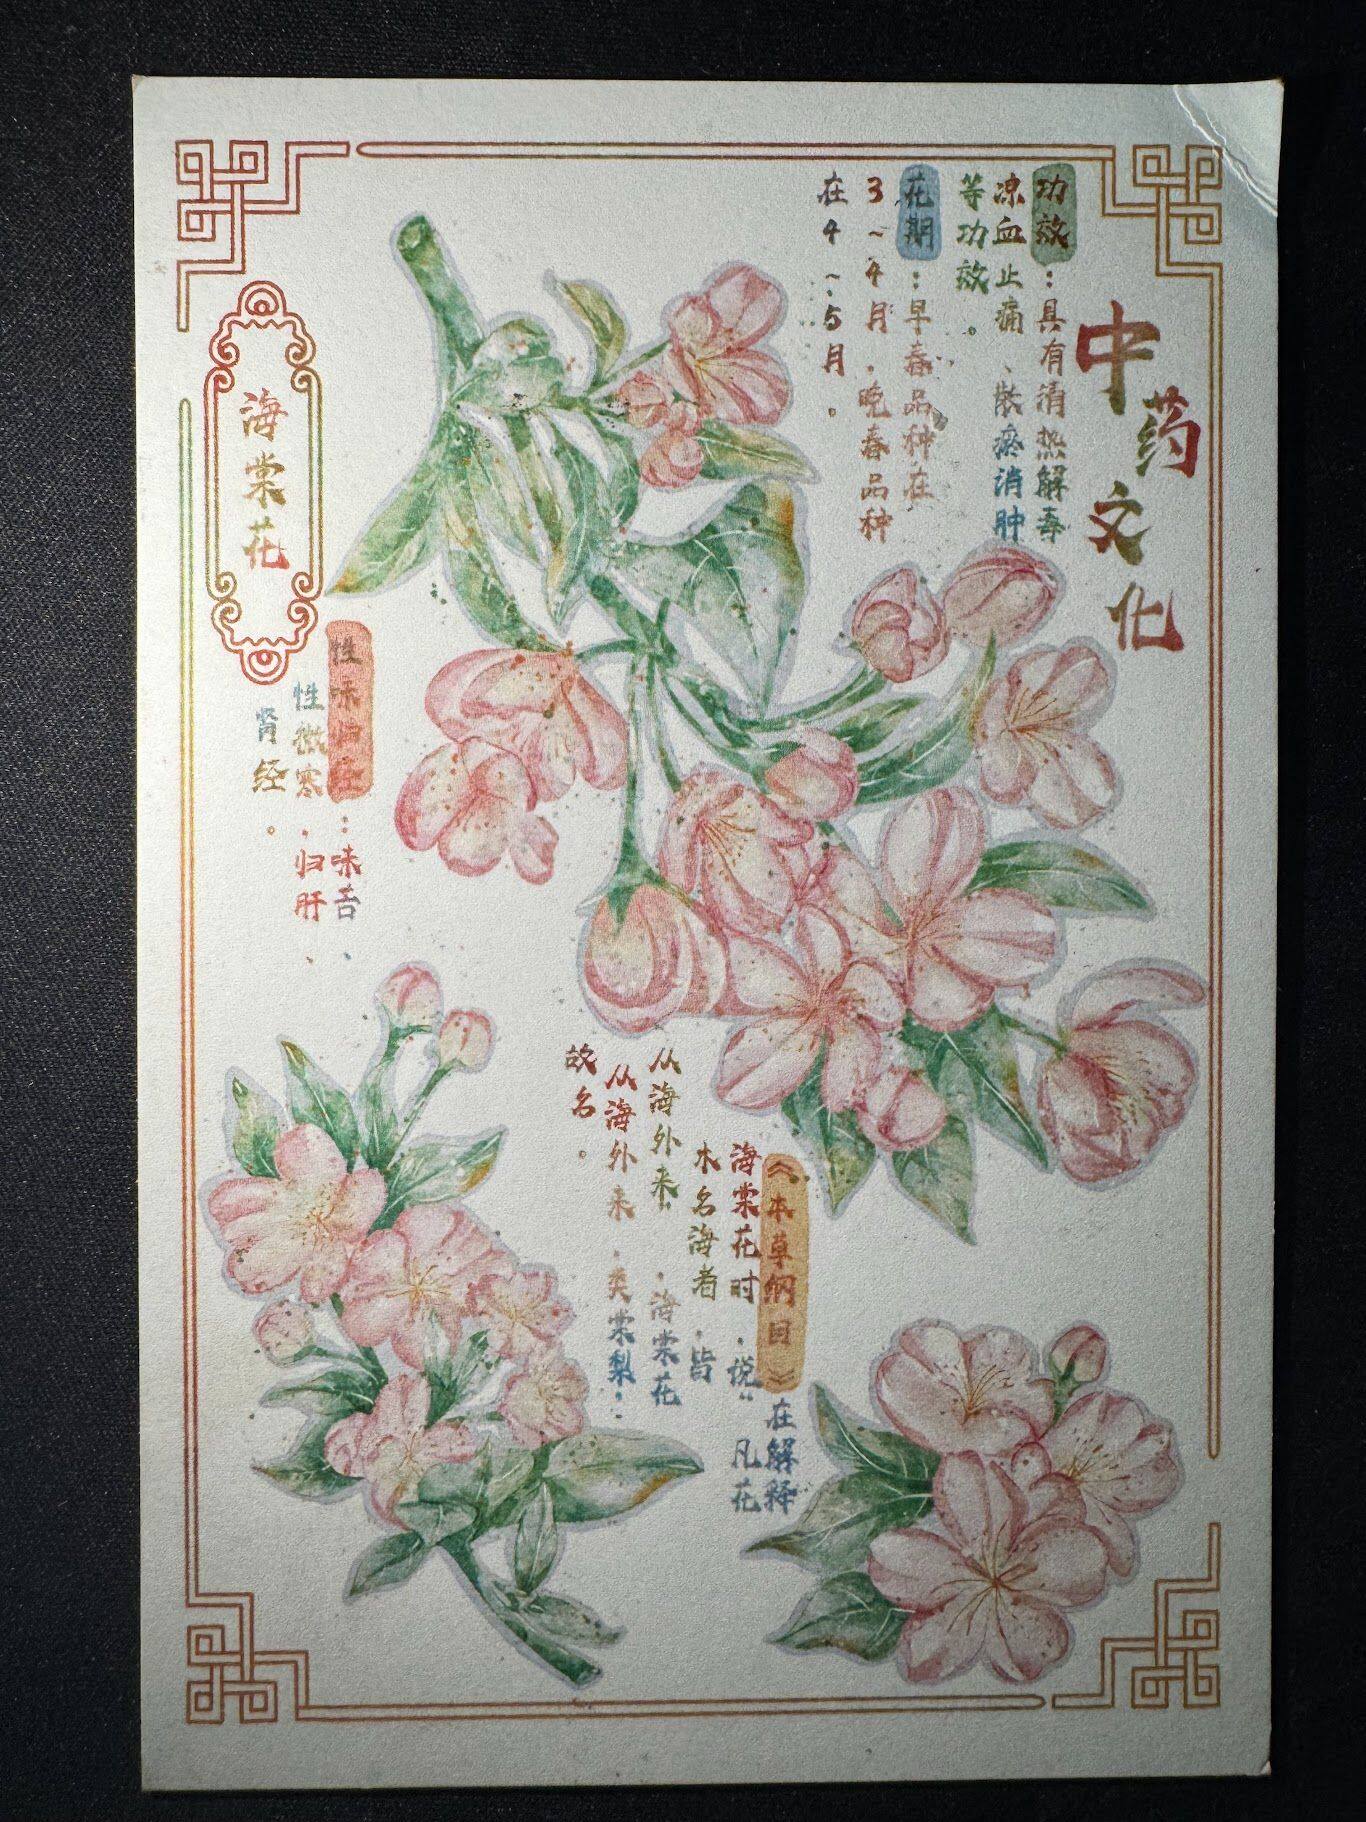 中药文化
功效：具有清热解毒
凉血止痛、散瘀消肿
等功效。
花期：早春品种在
3~4月，晚春品种
在4~5月。
海棠花
性味归经：味苦、
性微寒，归肝、
肾经。
《本草纲目》在解释
海棠花时，说“凡花
木名海者，皆
从海外来”，海棠花
从海外来，类棠梨，
故名。